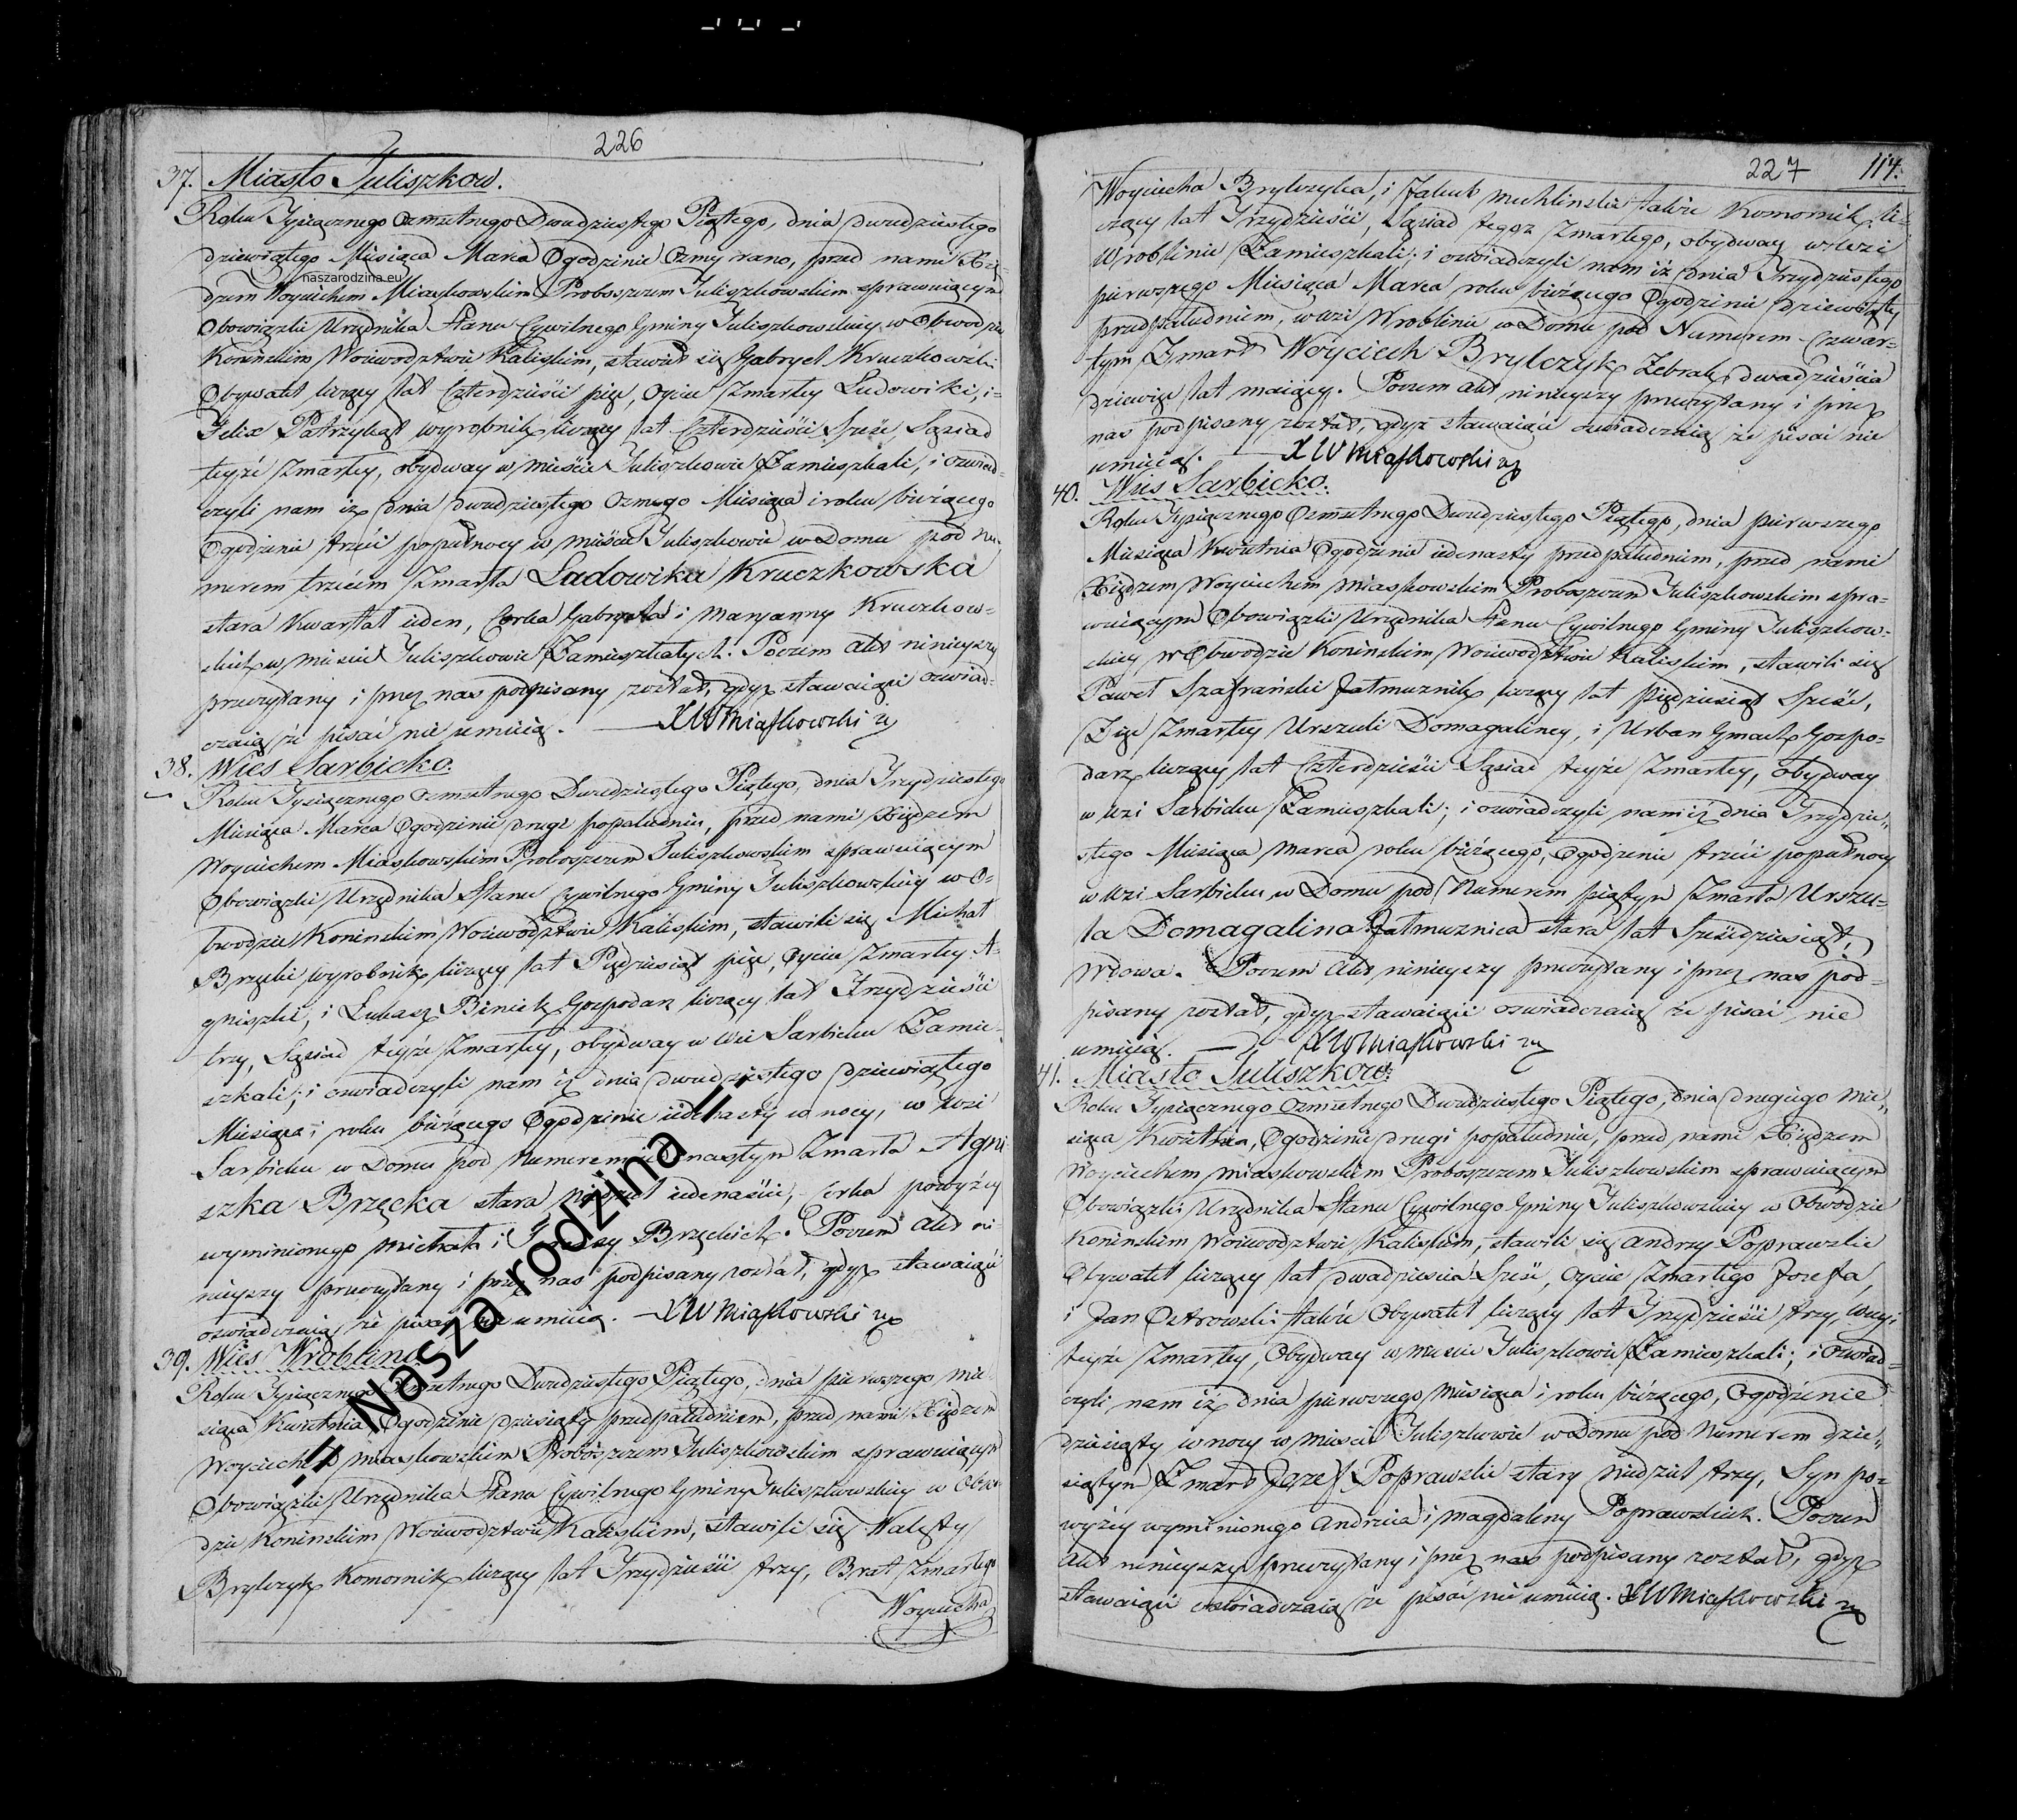 226
37. Miasto Tuliszkow.
Roku Tysiącznego Ozmsetnego Dwudziestego Piątego, dnia dwudziestego
dziewiątego Miesiąca Marca Ogodzinie Ozmy rano, przed nami Xię-
naszarodzina.eu
dzem Woyciechem Miaskowskim Proboszczem Tuliszkowskim sprawuiącym
Obowiązki Urzędnika Stanu Cywilnego Gminy Tuliszkowskiey w Obwodzie
Koninskim Woiewodztwie Kaliskim, stawił się Gabryel Kruczkowski
Obywatel liczący lat Czterdzieści pięć, Oyciec Zmarłey Ludowiki, i-
Felix Patrzykąt wyrobnik liczący lat Czterdzieści Sześć, Sąsiad
teyże Zmarłey, obydway w mieście Tuliszkowie Zamieszkali, i oswiad-
czyli nam iż dnia dwudziestego Ozmego Miesiąca i roku bieżącego
Ogodzinie trzeci popułnocy w mieście Tuliszkowie w Domu pod Nu-
merem trzecim Zmarła Ludowika Kruczkowska
stara Kwartał ieden, Corka Gabryela i Maryanny Kruczkow-
skich w mieście Tuliszkowie Zamieszkałych. Poczem Akt ninieyszy
przeczytany i przez nas podpisany został, gdyż stawaiący oswiad-
czaią że pisać nie umieią. XWMiaskowski
38. Wies Sarbicko.
Roku Tysiącznego Ozmsetnego Dwudziestego Piątego, dnia Trzydziestego
Miesiąca Marca Ogodzinie drugi popołudniu, przed nami Xiędzem
Woyciechem Miaskowskim Proboszczem Tuliszkowskim sprawuiącym
Obowiązki Urzędnika Stanu Cywilnego Gminy Tuliszkowskiey w O-
bwodzie Koninskim Woiewodztwie Kaliskim, stawili się Michał
Brzęki wyrobnik liczący lat Piędziesiąt pięć, Oyciec Zmarłey A-
gniszki, i Łukasz Biniek Gospodarz liczący lat Trzydzieści
trzy, Sąsiad teyże Zmarłey, obydway w Wsi Sarbicku Zamie-
szkali; i oswiadczyli nam iż dnia dwudziestego dziewiątego
Miesiąca i roku bieżącego Ogodzinie iedenasty w nocy, w Wsi
Sarbicku w Domu pod Numerem iedenastym Zmarła Agni
szka Brzęcka stara Niedziel iedenaście, Corka powyżey
wymienionego Michała i Brzęckich. Poczem Akt ni-
nieyszy przeczytany i przez nas podpisany został, gdyż stawaiący
oswiadczaią że pisać nie umieią. XWMiaskowski
39. Wies Wroblina.
Roku Tysiącznego Ozmsetnego Dwudziestego Piątego, dnia pierwszego mie-
siąca Kwietnia Ogodzinie dziesiąty przedpołudniem, przed nami Xiędzem
Woyciechem Miaskowskim Proboszczem Tuliszkowskim sprawuiącym
Obowiązki Urzędnika Stanu Cywilnego Gminy Tuliszkowskiey w Obwo-
dzie Koninskim Woiewodztwie Kaliskim, stawili się Walęty
Brylczyk Komornik liczący lat Trzydzieści trzy, Brat Zmarłego
Woyciecha
= Nasza rodzina =
227 114.
Woyciecha Brylczyka, i Jakub Michlinski także Komornik li-
czący lat Trzydzieści, Sąsiad tegoż Zmarłego, obydway w Wsi
Wroblinie Zamieszkali; i oswiadczyli nam iż dnia Trzydziestego
pierwszego Miesiąca Marca roku bieżącego Ogodzinie dziewiąty
przedpołudniem, w Wsi Wroblinie w Domu pod Numerem Czwar-
tym Zmarł Woyciech Brylczyk Zebrak dwadzieścia
dziewięć lat maiący. Poczem Akt ninieyszy przeczytany i przez
nas podpisany został, gdyż stawaiący oswiadczaią że pisać nie
umieią. XWMiaskowski
40. Wies Sarbicko.
Roku Tysiącznego Ozmsetnego Dwudziestego Piątego, dnia pierwszego
Miesiąca Kwietnia Ogodzinie iedenasty przedpołudniem, przed nami
Xiędzem Woyciechem Miaskowskim Proboszczem Tuliszkowskim spra-
wuiącym Obowiązki Urzędnika Stanu Cywilnego Gminy Tuliszkow-
skiey w Obwodzie Koninskim Woiewodztwie Kaliskim, stawili się
Paweł Szafrański Jałmuznik liczący lat Piędziesiąt Sześć,
Zięć Zmarłey Urszuli Domagaliney, i Urban Gmach Gospo-
darz liczący lat Czterdzieści Sąsiad teyże Zmarłey, obydway
w Wsi Sarbicku Zamieszkali; i oswiadczyli nam iż dnia Trzydzie-
stego Miesiąca Marca roku bieżącego, Ogodzinie trzeci popułnocy
w Wsi Sarbicku w Domu pod Numerem piątym Zmarła Urszu-
la Domagalina Jałmuznica stara lat Sześdziesiąt,
Wdowa. Poczem Akt ninieyszy przeczytany i przez nas pod-
pisany został, gdyż stawaiący oswiadczaią że pisać nie
umieią. XWMiaskowski
41. Miasto Tuliszkow.
Roku Tysiącznego Ozmsetnego Dwudziestego Piątego, dnia drugiego Mie-
siąca Kwietnia, Ogodzinie drugi popołudniu, przed nami Xiędzem
Woyciechem Miaskowskim Proboszczem Tuliszkowskim sprawuiącym
Obowiązki Urzędnika Stanu Cywilnego Gminy Tuliszkowskiey w Obwodzie
Koninskim Woiewodztwie Kaliskim, stawili się Andrzy Poprawski
Obywatel liczący lat dwadzieścia Sześć, Oyciec Zmarłego Jozefa,
i Jan Ostrowski także Obywatel liczący lat Trzydzieści trzy, Wuy
teyże Zmarłey, Obydway w mieście Tuliszkowie Zamieszkali; i oswiad-
czyli nam iż dnia pierwszego Miesiąca i roku bieżącego, Ogodzinie
dziesiąty w nocy w mieście Tuliszkowie w Domu pod Numerem dzie-
siątym Zmarł Jozef Poprawski stary Niedziel trzy, Syn po-
wyżey wymienionego Andrzeia i Magdaleny Poprawskich. Poczem
Akt ninieyszy przeczytany i przez nas podpisany został, gdyż
stawaiący oswiadczaią że pisać nie umieią. XWMiaskowski